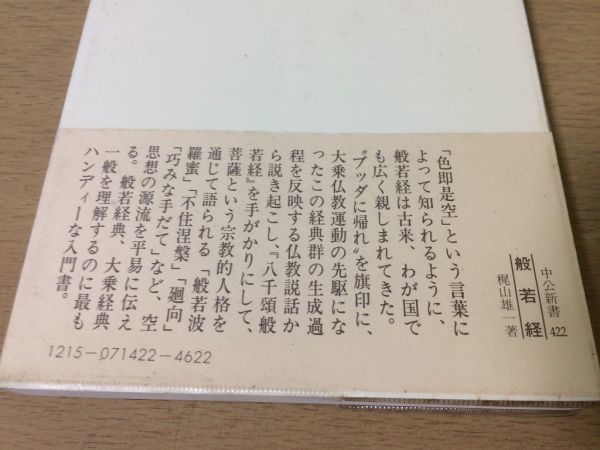 中公新書 422
般若経
梶山雄一著
「色即是空」という言葉に
よって知られるように、
般若経は古来、わが国で
も広く親しまれてきた。
〝ブッダに帰れ〟を旗印に、
大乗仏教運動の先駆にな
ったこの経典群の生成過
程を反映する仏教説話か
ら説き起こし、『八千頌般
若経』を手がかりにして、
菩薩という宗教的人格を
通じて語られる「般若波
羅蜜」「不住涅槃」「廻向」
「巧みな手だて」など、空
思想の源流を平易に伝え
る。般若経典、大乗経典
一般を理解するのに最も
ハンディーな入門書。
1215-071422-4622